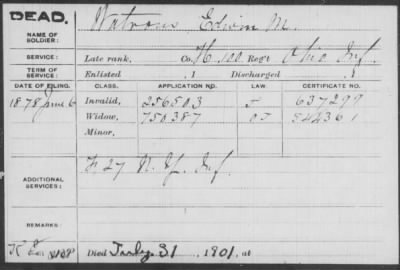 DEAD.
Watrous Edwin M.
NAME OF
SOLDIER:
SERVICE: Late rank, Co. H, 100 Reg't Ohio Inf.
TERM OF
SERVICE: Enlisted , 1 Discharged , 1
DATE OF FILING. CLASS. APPLICATION NO. LAW. CERTIFICATE NO.
1878 June 6 Invalid, 256503 637299
Widow, 750387 542361
Minor,
ADDITIONAL
SERVICES:
F 27 N.Y. Inf
REMARKS:
Died July 31 , 1901, at